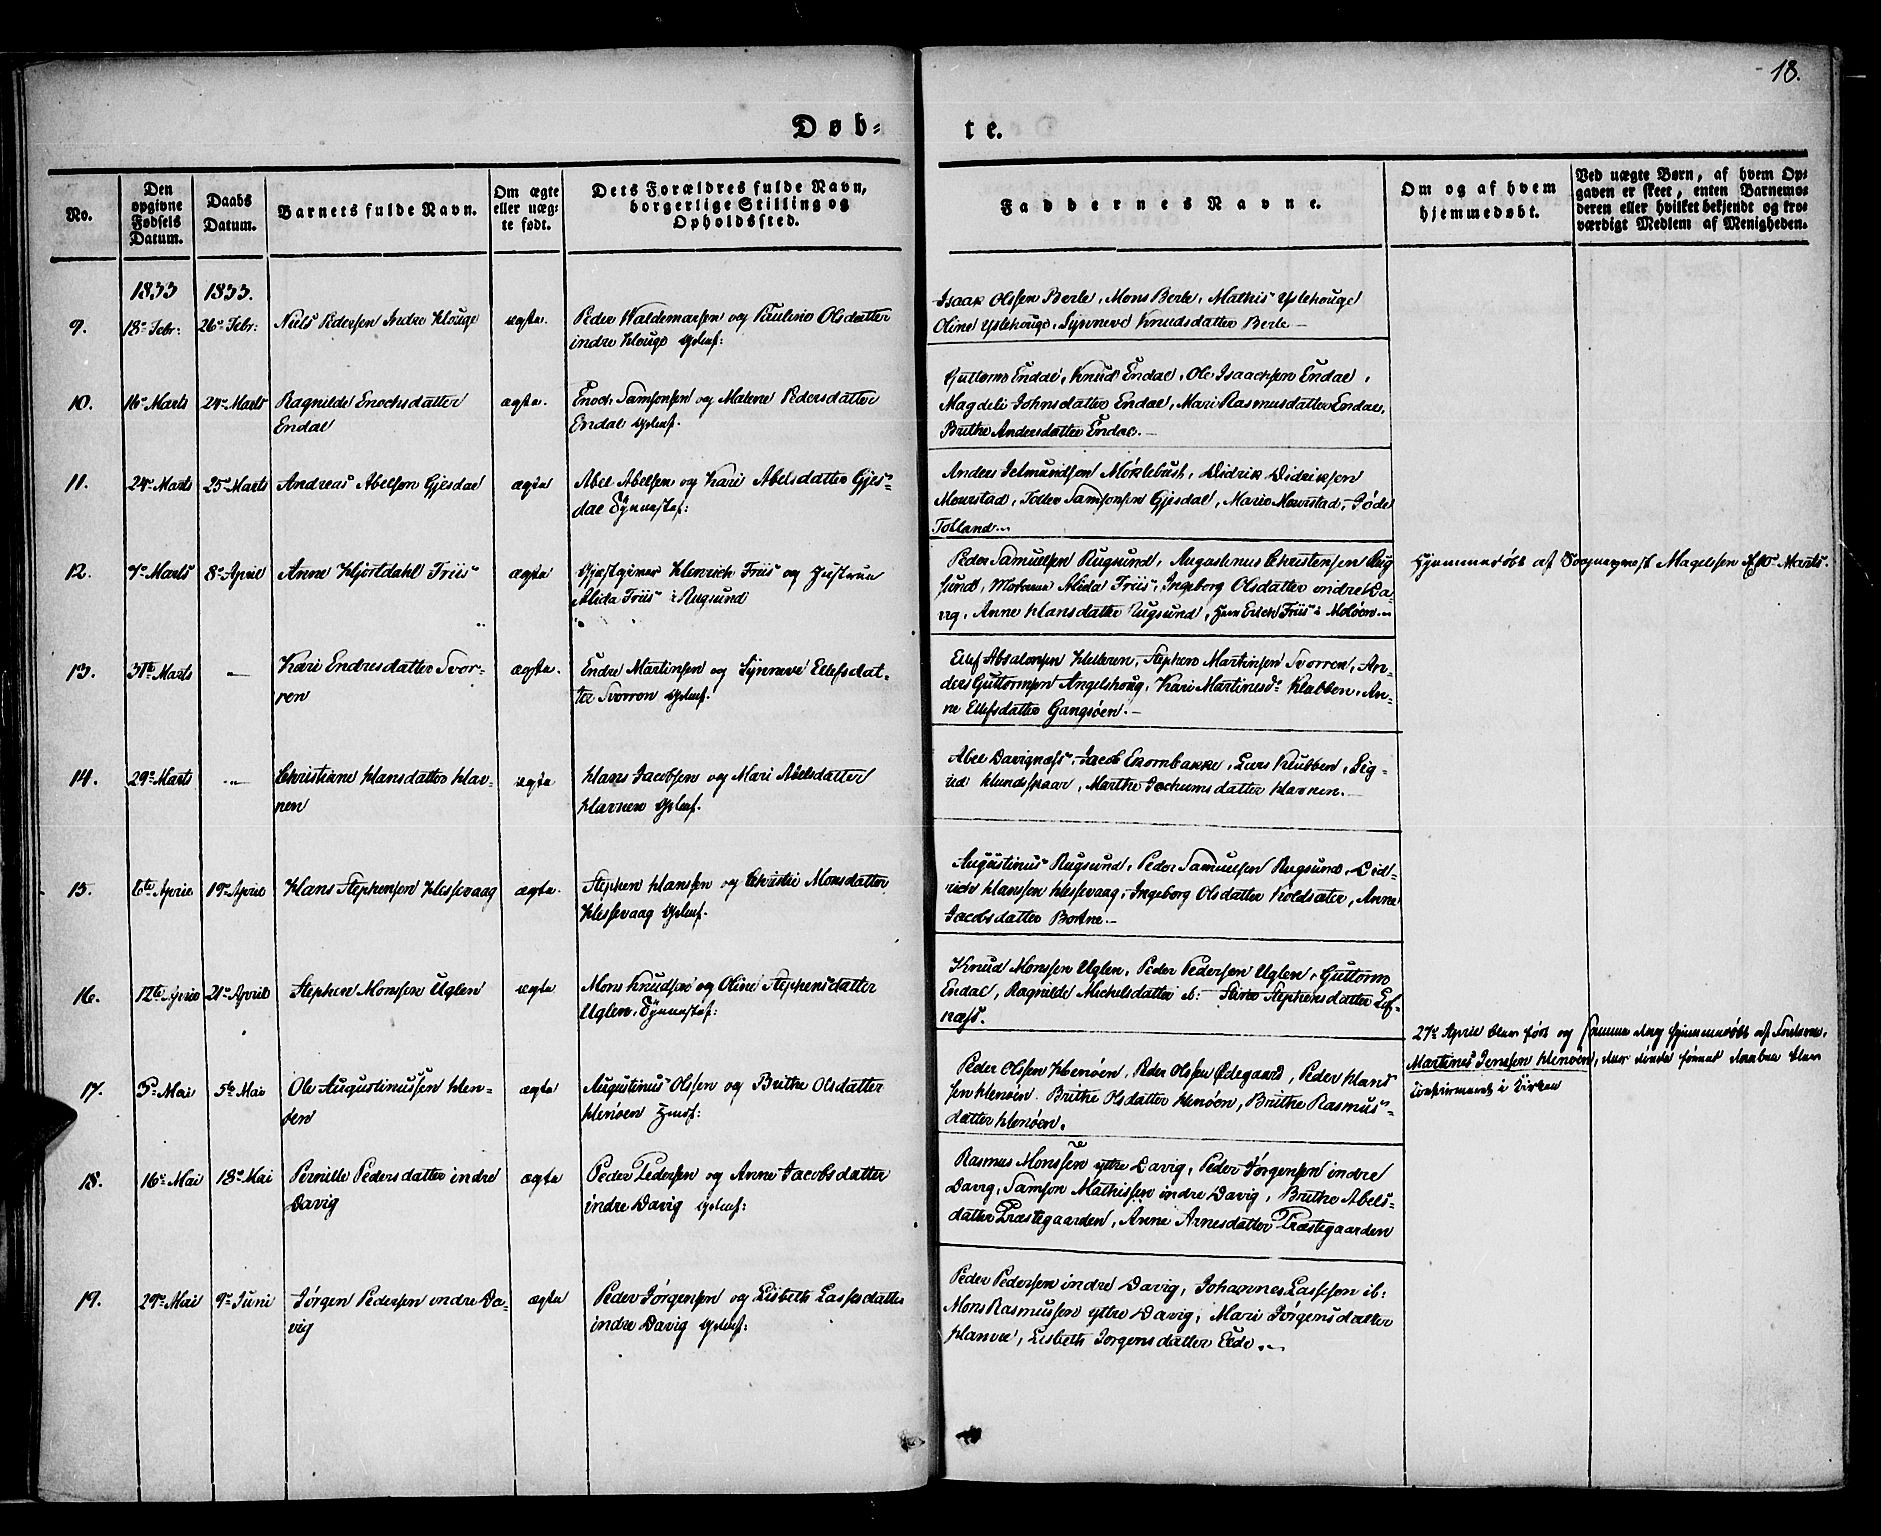 18.
Døb-
te.
No.
Den
opgivne
Fødsels
Datum.
Daabs
Datum.
Barnets fulde Navn.
Om ægte
eller uæg-
te født.
Dets Forældres fulde Navn,
borgerlige Stilling og
Opholdssted.
Faddernes Navne.
Om og af hvem
hjemmedøbt.
Ved uægte Børn, af hvem Op-
gaven er skeet, enten Barnemo-
deren eller hvilket bekjendt og tro-
værdigt Medlem af Menigheden.
1833 1833.
9. 18de Febr: 26de Febr: Niels Pedersen Indre Houge ægte. Peder Waldemarsen og Pauline Olsdatter
indre Houge
Isaak Olssen Berle, Mons Berle, Mathis Yttehouge
Oline Yttehouge, Synneve Knudsdatter Berle.
10. 16de Marts 24de Marts Ragnilde Enochsdatter ægte. Enoch Samsonsen og Malene Pedersdatter
Endal Endal
Guttorm Endal, Knud Endal, Ole Isaacksen Endal,
Magdeli Johnsdatter Endal, Mari Rasmusdatter Endal,
Brithe Andersdatter Endal.
11. 24de Marts 25de Marts Andreas Abelsen Gjesdal ægte Abel Abelsen og Kari Abelsdatter Gjes-
dal
Anders Møklebust, Didrik Didriksen
Maurstad, Samsonsen Gjesdal, Marie Maurstad,
Totland
12. 7de Marts 8de April Anne Hjortdahl Friis ægte Gjæstgiver Hinrich Friis og Hustrue
Alida Friis i Rugsund
Peder Samuelsen Rugsund, Augustinus Christensen Rug-
sund, Alida Friis, Ingeborg Olsdatter indre Da-
vig, Anne Hansdatter Rugsund, Herr Erich Friis i Moldøen
Hjemmedøbt af Sogneprest Magelsen Marts.
13. 31te Marts — Kari Endresdatter Svor- ægte. Endre Martinsen og Synneve Ellefsdat-
ren ter Svorren
Ellef Absalonsen Helleren, Stephen Martinsen Svorren, An-
ders Guttormsen Angelshoug, Kari Martinesd. Klubben, An-
ne Ellefsdatter Gangsøen.
14. 29de Marts — Christiane Hansdatter Hav- ægte Hans Jacobsen og Mari Abelsdatter
nen Havnen
Abel Davignæss, Jacob Lars Klubben, Sig-
rid Hundskaar, Marthe Jochumsdatter Havnen.
15. 6te April 19de April Hans Stephensen Hessevaag ægte. Stephen Hanssen og Christie Monsdatter
Hessevaag
Augustinus Rugsund, Peder Samuelsen Rugsund, Did-
rich Hanssen Hessevaag, Ingeborg Olsdatter Koldsæter, Anne
Jacobsdatter Bortne.
16. 12te April 21de April Stephen Monssen Uglen ægte Mons Knudsen og Oline Stephensdatter
Uglen,
Knud Monssen Uglen, Peder Pedersen Uglen, Guttorm
Endal, Ragnilde Michelsdatter ib: Stephensdatter
næss.
17. 3de Mai 5te Mai Ole Augustinussen Hen- ægte Augustinus Olssen og Brithe Olsdatter
øen Henøen
Peder Olssen Henøen, Peder Olssen Ødegaard, Peder Hans-
sen Henøen. Brithe Olsdatter Henøen, Brithe Rasmus-
datter Henøen.
27de April blev født og samme dag hjemmedøbt af
Martines Jenssen Henøen,
i Kirken
18. 16de Mai 18de Mai Pernille Pedersdatter indre ægte Peder Pedersen og Anne Jacobsdatter
Davig indre Davig
Rasmus Monssen yttre Davig, Peder Jørgensen indre
Davig, Samson Mathissen indre Davig, Brithe Abels-
datter Præstegaarden, Anne Arnesdatter Præstegaarden
19. 29de Mai 9de Juni Jørgen Pedersen indre Da- ægte Peder Jørgensen og Lisbeth Lassesdatter
vig indre Davig
Peder Pedersen indre Davig, Johannes Lassesen ib:
Mons Rasmussen yttre Davig, Mari Jørgensdatter
Lisbeth Jørgensdatter Eide.